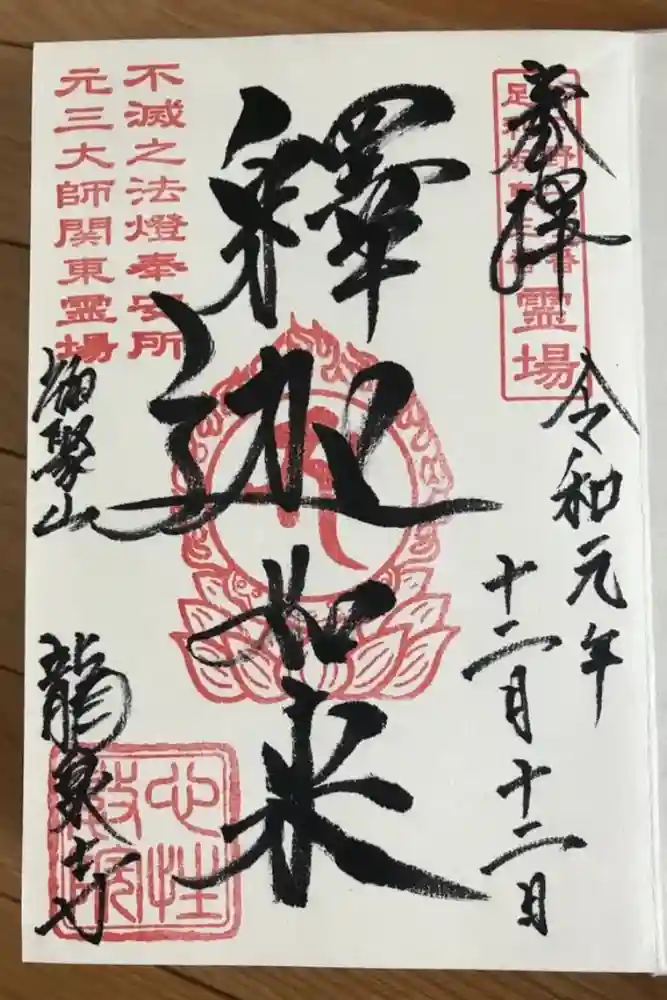 奉拝
霊場
令和元年
十二月十二日
釋迦如来
不滅之法燈奉安所
元三大師関東霊場
龍泉寺